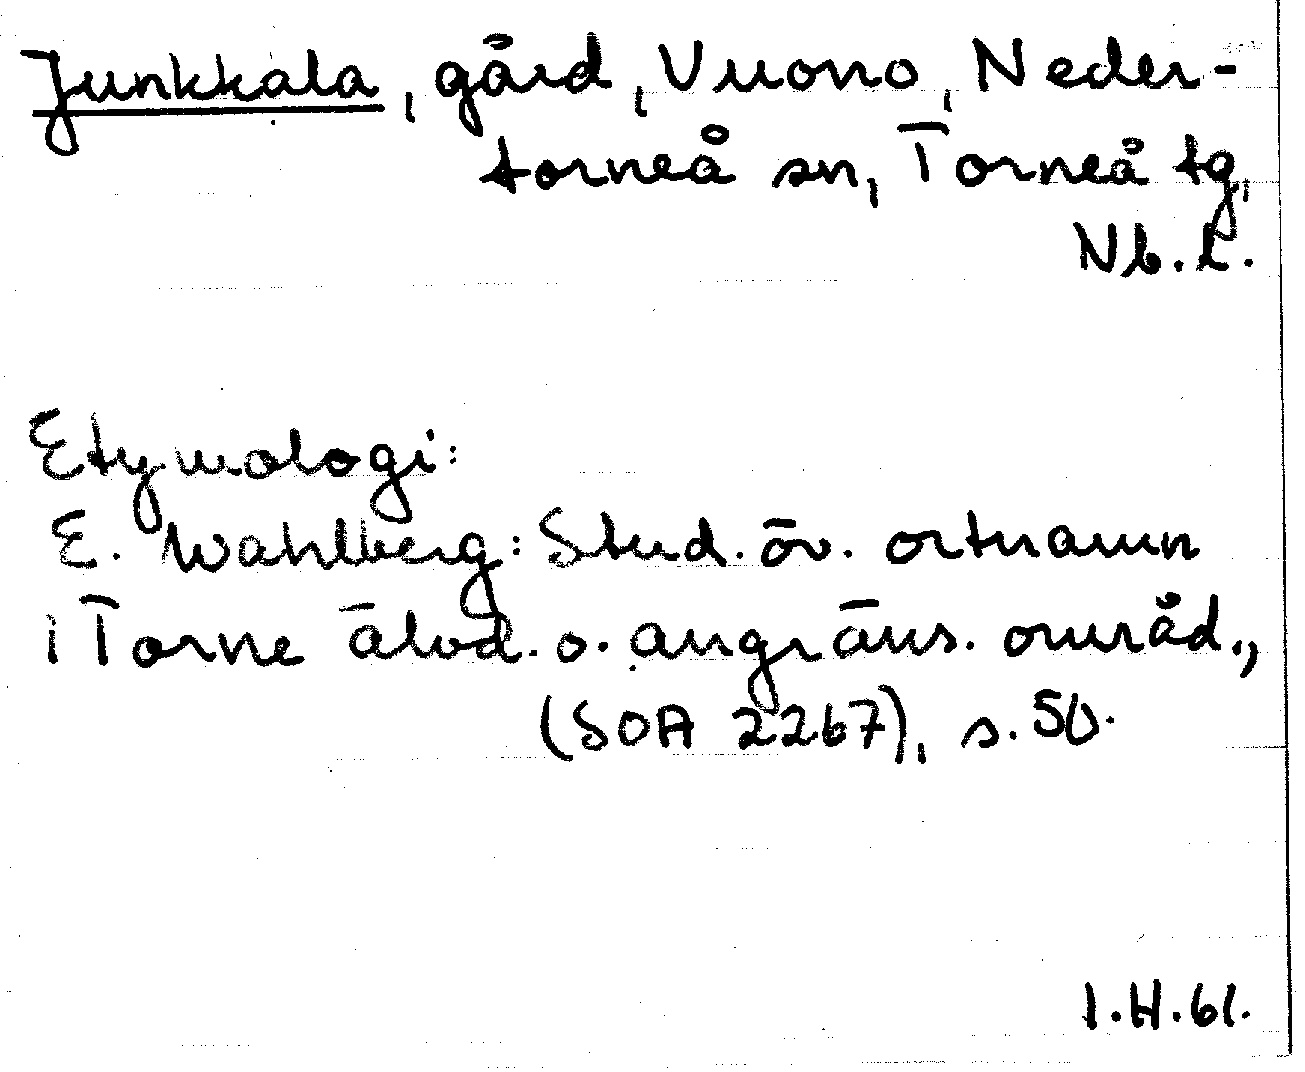 Junkkala, gård, Vuono, Neder-
torneå sn, Torneå tg,
Nb.L.
Etymologi:
E. Wahlberg: Stud. öv. ortnamn
i Torne älvd. o. angräns. områd.,
(SOA 2267), s. 50.
I.H.61.